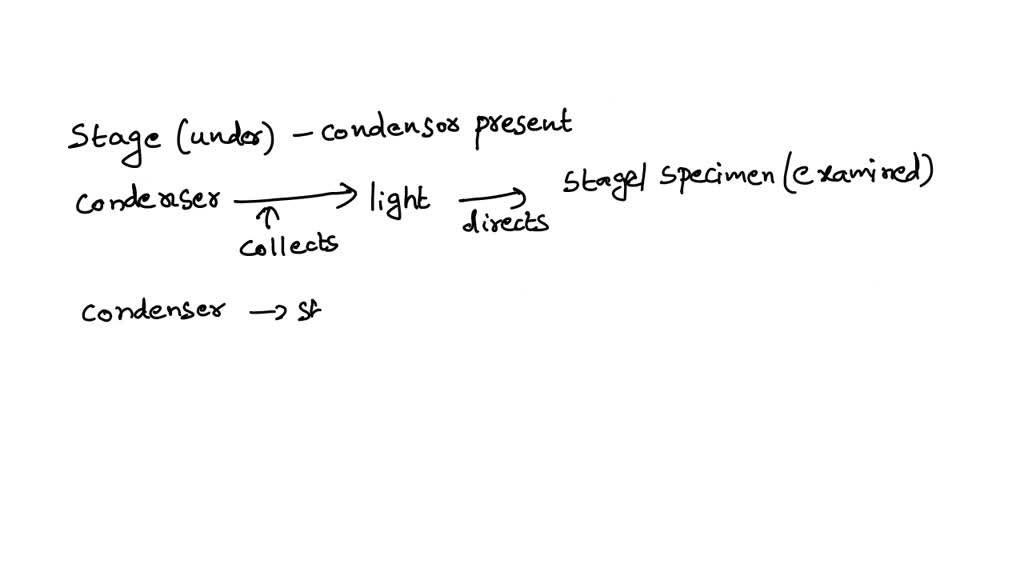 Stage (under) - condensor present
condenser → light → stage/ specimen (examined)
↑ collects directs
condenser → st